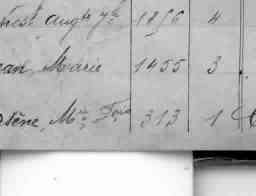 nest, augte 7b 1856 4
ean, Marie 1455 3
sène, Mie Fois 313 1